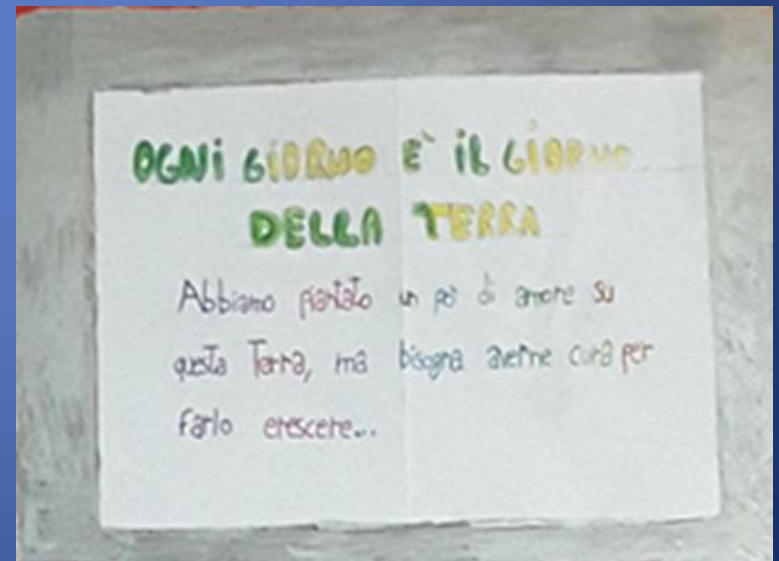 OGNi GiORNO E' iL GiORNO
DELLA TERRA
Abbiamo piantato un po' di amore su
questa Terra, ma bisogna averne cura per
farlo crescere...